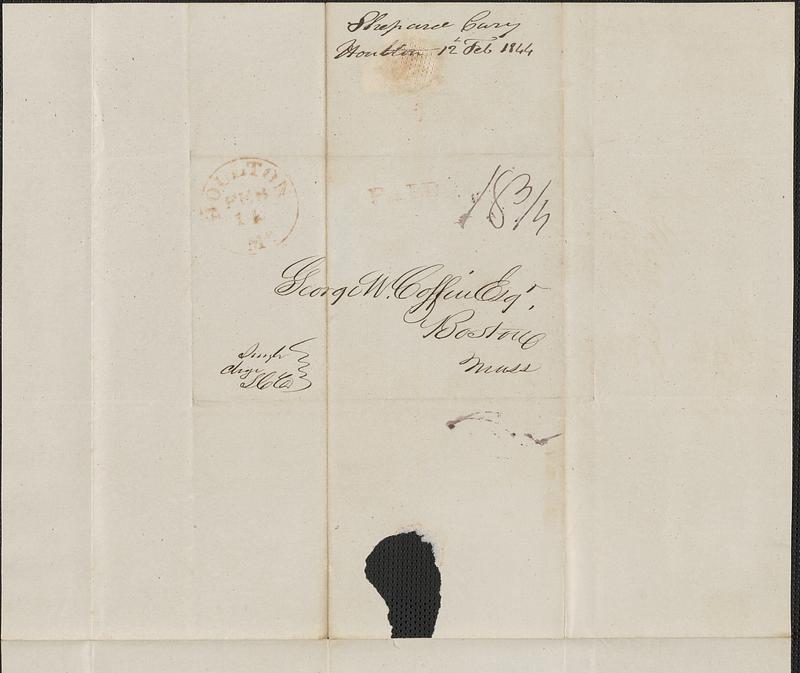 Shepard Cary
Houlton 12th Feb 1844
HOULTON
FEB
14
Me
PAID
18 3/4
George W. Coffin Esqr.
Boston
Mass
Single
Chge
S C Co